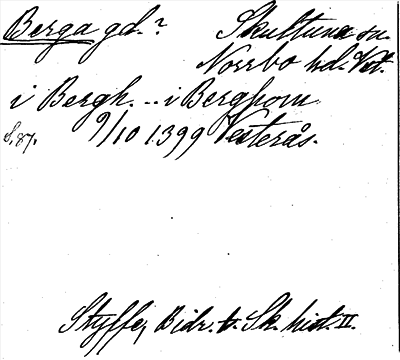 Berga gd.? Skultuna sn
Norrbo hd. Vst.
i Bergh. .. i Berghom
S. 87. 9/10 1399 Vesterås.
Styffe, Bidr. t. Sk. hist. II.